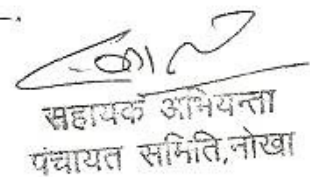 सहायक अभियन्ता
पंचायत समिति, नोखा